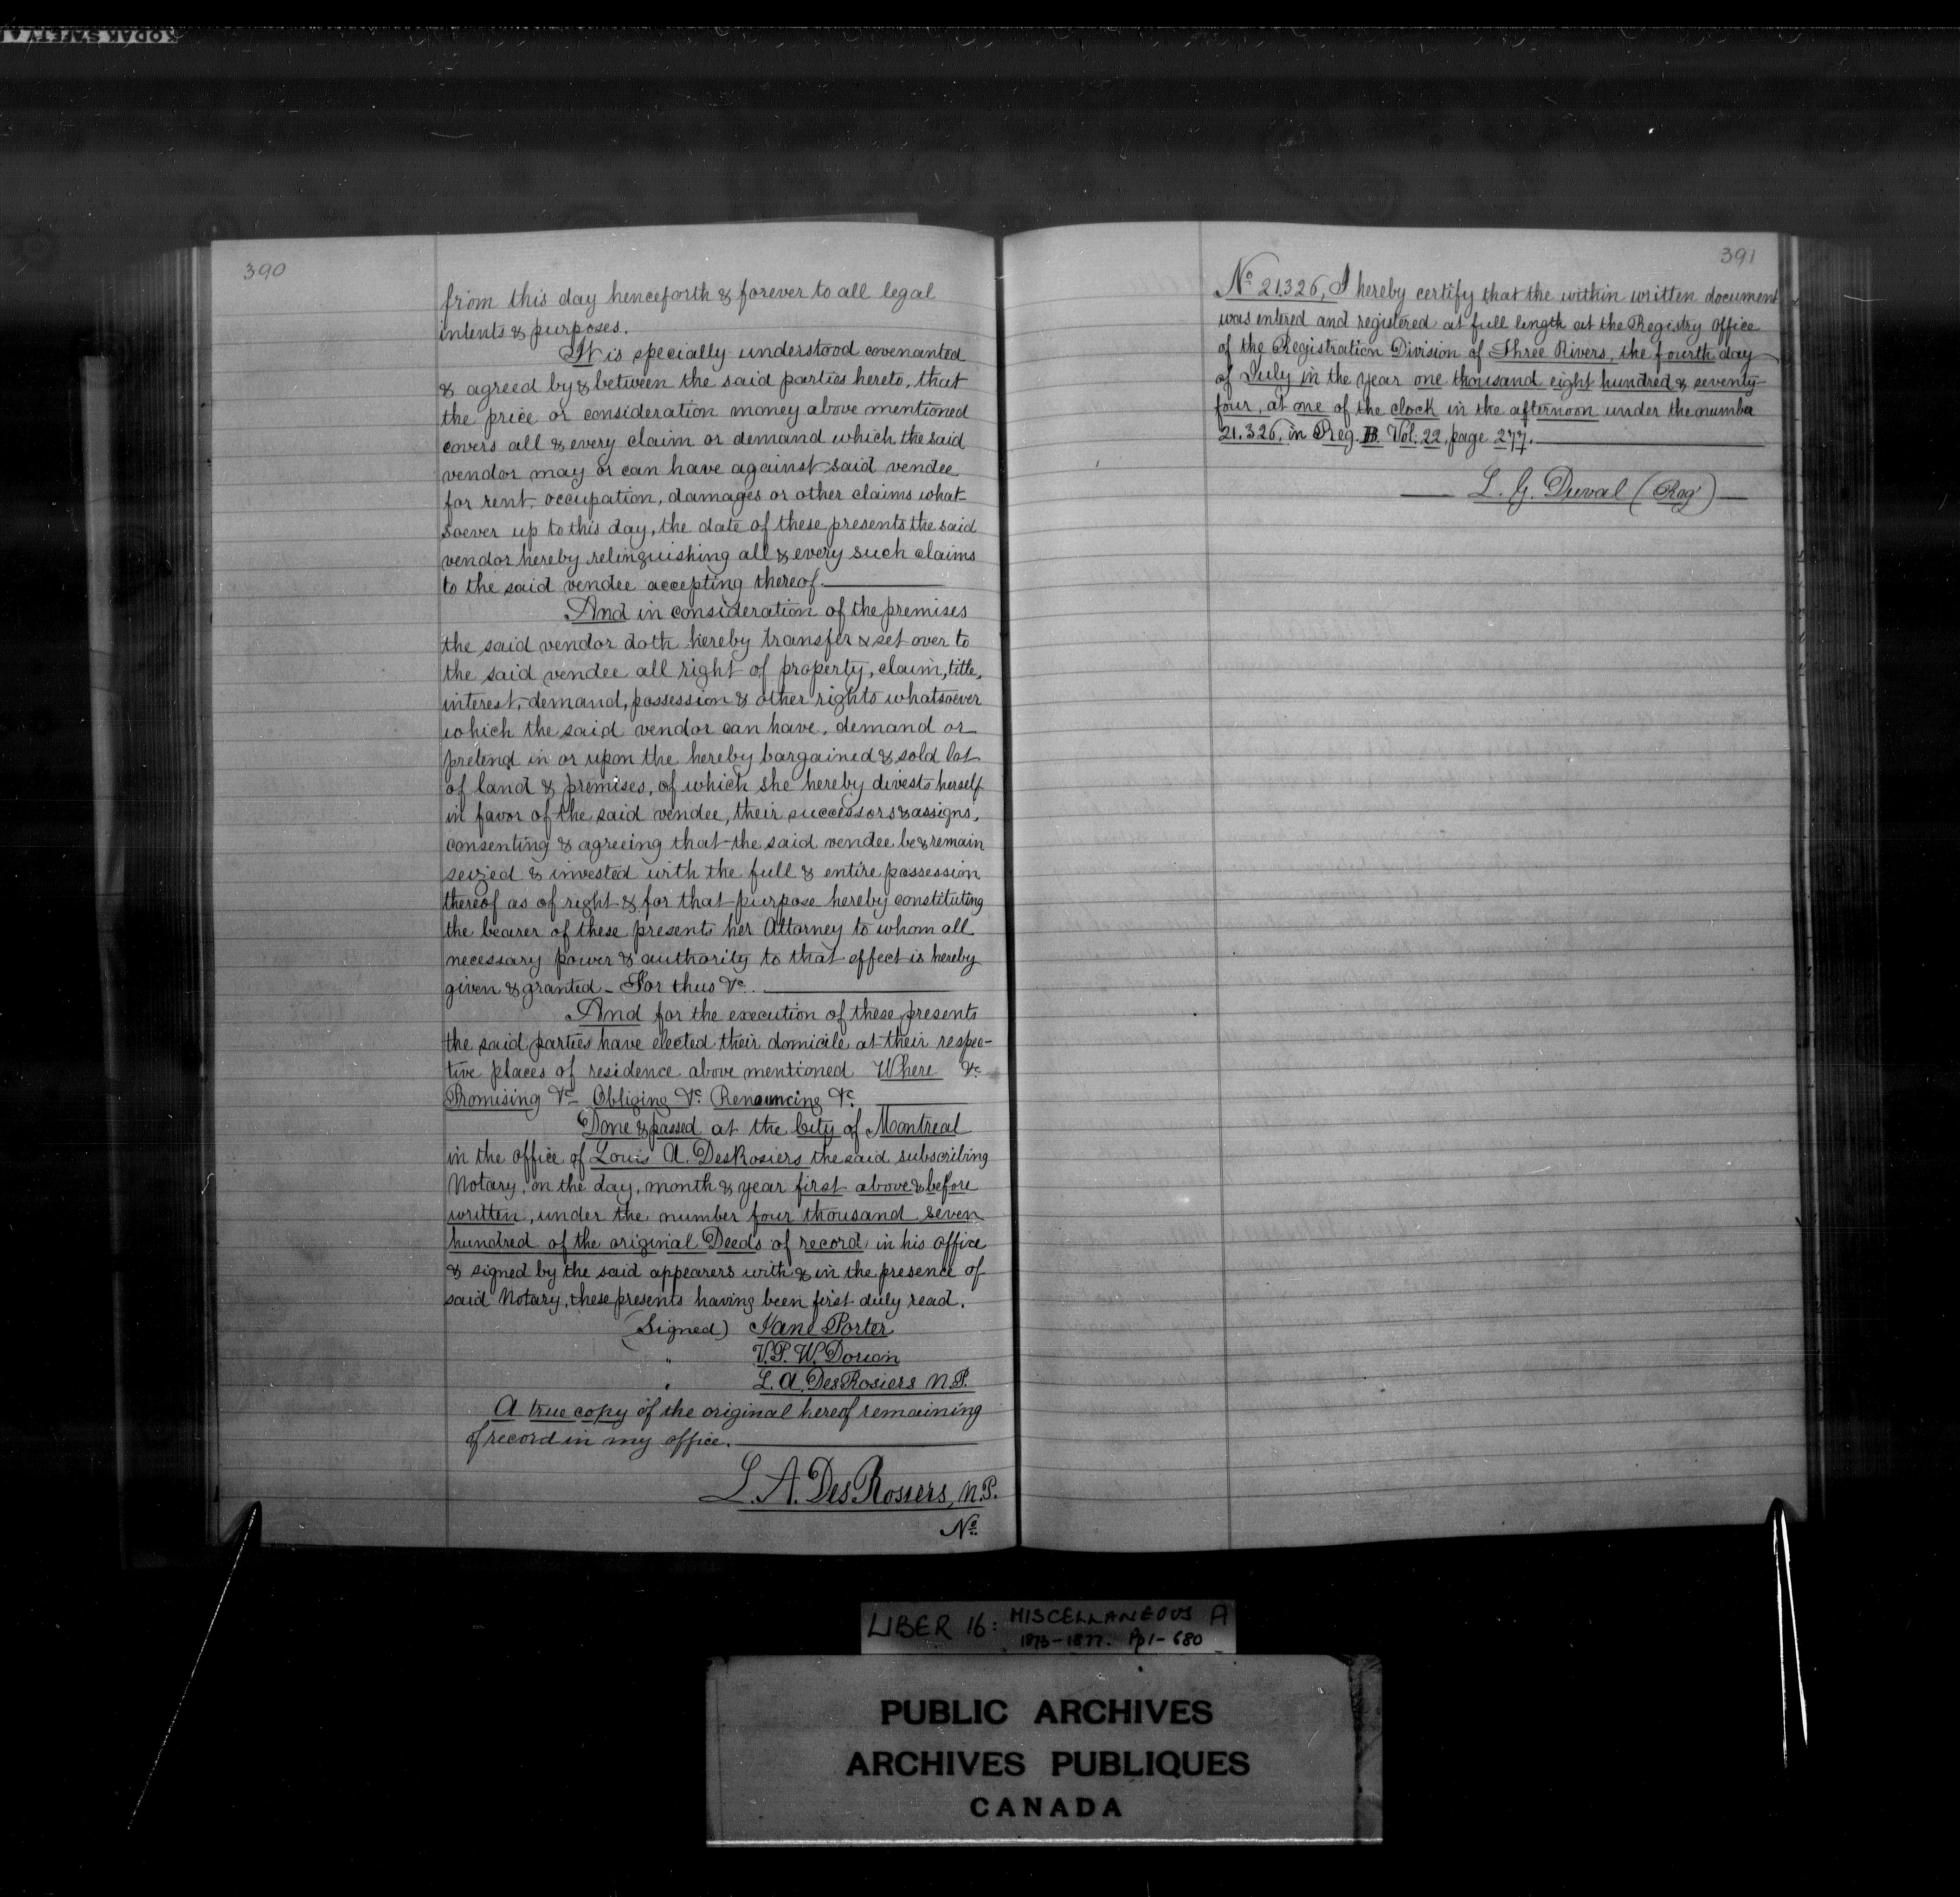 KODAK SAFETY
390
from this day henceforth & forever to all legal
intents & purposes.
It is specially understood covenanted
& agreed by & between the said parties hereto, that
the price or consideration money above mentioned
covers all & every claim or demand which the said
vendor may or can have against said vendee
for rent, occupation, damages or other claims what-
soever up to this day, the date of these presents the said
vendor hereby relinquishing all & every such claims
to the said vendee accepting thereof.
And in consideration of the premises
the said vendor doth hereby transfer & set over to
the said vendee all right of property, claim, title,
interest, demand, possession & other rights whatsoever
which the said vendor can have, demand or
pretend in or upon the hereby bargained & sold lot
of land & premises, of which she hereby divests herself
in favor of the said vendee, their successors & assigns,
consenting & agreeing that the said vendee be & remain
seized & invested with the full & entire possession
thereof as of right & for that purpose hereby constituting
the bearer of these presents her Attorney to whom all
necessary power & authority to that effect is hereby
given & granted - For thus &c.
And for the execution of these presents
the said parties have elected their domicile at their respec-
tive places of residence above mentioned Where &c
Promising &c Obliging &c. Renouncing &c.
Done & passed at the City of Montreal
in the office of Louis A. DesRosiers the said subscribing
Notary, on the day, month & year first above & before
written, under the number four thousand seven
hundred of the original Deeds of record in his office
& signed by the said appearers with & in the presence of
said Notary, these presents having been first duly read.
(Signed) Jane Porter
" V.P.W. Dorion
" L.A. DesRosiers N.P.
A true copy of the original hereof remaining
of record in my office.
L.A. DesRosiers, N.P.
No.
391
No. 21326, I hereby certify that the within written document
was entered and registered at full length at the Registry Office
of the Registration Division of Three Rivers, the fourth day
of July in the year one thousand eight hundred & seventy-
four, at one of the clock in the afternoon under the number
21.326, in Reg. B. Vol. 22, page 277.
L. G. Duval (Reg.)
LIBER 16: MISCELLANEOUS A
1873-1877. Pp 1-680
PUBLIC ARCHIVES
ARCHIVES PUBLIQUES
CANADA